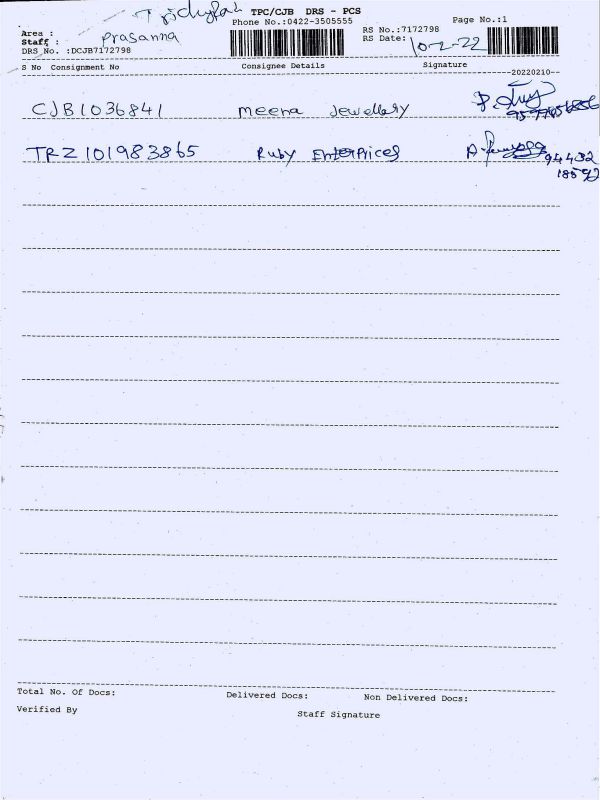 TPC/CJB DRS - PCS
Phone No.:0422-3505555
Page No.:1
Area :
Staff : Prasanna
RS No.:7172798
RS Date: 10-2-22
DRS No. :DCJB7172798
S No Consignment No Consignee Details Signature
--20220210--
CJB1036841 meena Jewellery
TRZ101983865 Ruby Enterprices
94432
18592
Total No. Of Docs: Delivered Docs: Non Delivered Docs:
Verified By Staff Signature